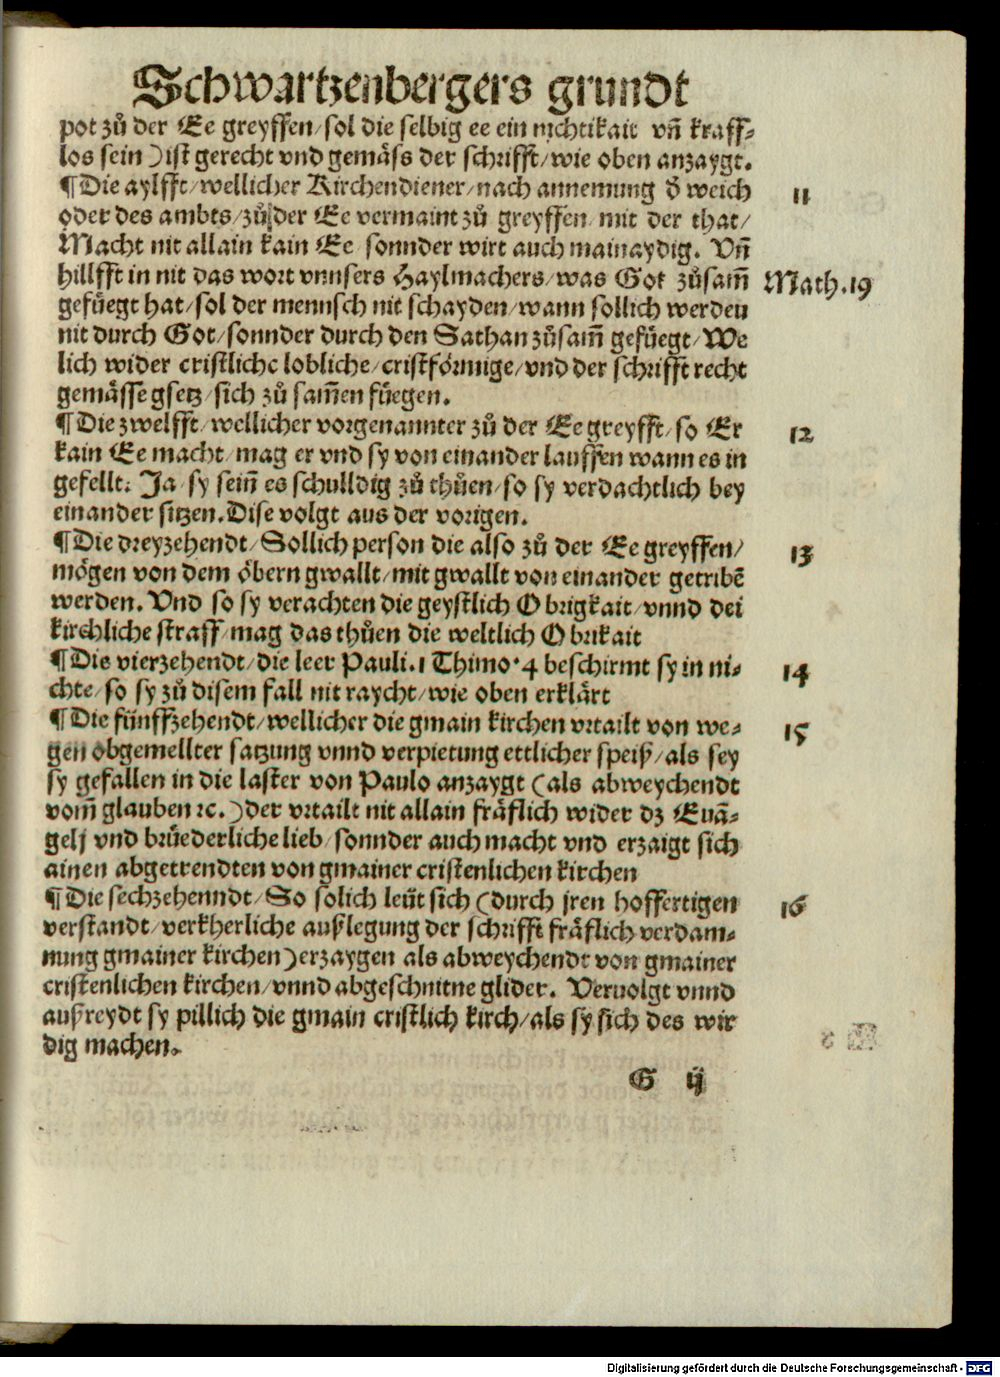 Schwartzenbergers grundt
pot zů der Ee greyffen/sol die selbig ee ein nichtikait vñ kraff⸗
los sein) ist gerecht vnd gemäss der schrifft/wie oben anzaygt.
¶Die aylfft/wellicher Kirchendiener/nach annemung ð weich 11
oder des ambts/zů der Ee vermaint zů greyffen/mit der that/
Macht nit allain kain Ee sonnder wirt auch mainaydig. Vñ
hillfft in nit das wort vnnsers Haylmachers/was Got zůsam̃ Math.19
gefüegt hat/sol der mennsch nit schayden/wann sollich werden
nit durch Got/sonnder durch den Sathan zůsam̃ gefüegt/We
lich wider cristliche lobliche/cristförmige/vnd der schrifft recht
gemässe gsetz/sich zů sam̃en füegen.
¶Die zwelfft/wellicher vorgenannter zů der Ee greyfft/so Er 12
kain Ee macht/mag er vnd sy von einander lauffen wann es in
gefellt: Ja/sy sein̄ es schulldig zů thůen/so sy verdachtlich bey
einander sitzen. Dise volgt aus der vorigen.
¶Die dreyzehendt/Sollich person die also zů der Ee greyffen/ 13
mögen von dem öbern gwallt/mit gwallt von einander getribē
werden. Vnd so sy verachten die geystlich Obrigkait/vnnd dei
kirchliche straff/mag das thůen die weltlich Obrikait
¶Die vierzehendt/die leer Pauli.1 Thimo.4 beschirmt sy in ni⸗ 14
chte/so sy zů disem fall nit raycht/wie oben erklärt
¶Die fünffzehendt/wellicher die gmain kirchen vrtailt von we⸗ 15
gen obgemellter satzung vnnd verpietung ettlicher speiß/als sey
sy gefallen in die laster von Paulo anzaygt (als abweychendt
vom̃ glauben ꝛc.) der vrtailt nit allain fräflich wider dz Euā⸗
gelj vnd brüederliche lieb/sonnder auch macht vnd erzaigt sich
ainen abgetrendten von gmainer cristenlichen kirchen
¶Die sechzehenndt/So solich leüt sich (durch jren hoffertigen 16
verstandt/verkherliche außlegung der schrifft fräflich verdam⸗
nung gmainer kirchen) erzaygen als abweychendt von gmainer
cristenlichen kirchen/vnnd abgeschnitne glider. Veruolgt vnnd
außreydt sy pillich die gmain cristlich kirch/als sy sich des wir
dig machen.
G ij
Digitalisierung gefördert durch die Deutsche Forschungsgemeinschaft - DFG